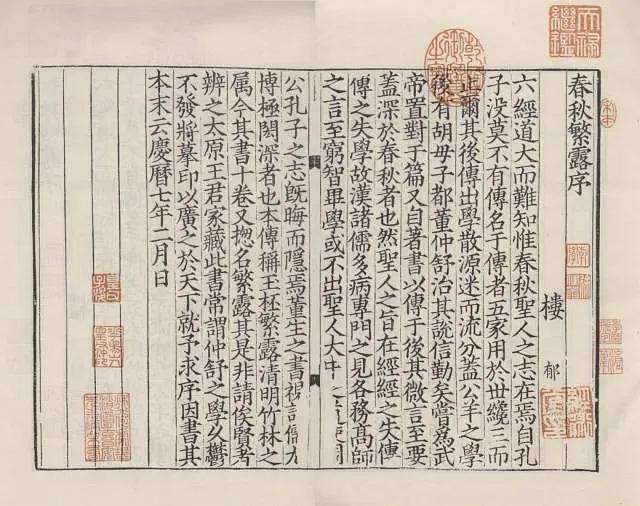 春秋繁露序
樓 郁
六經道大而難知惟春秋聖人之志在焉自孔
子没莫不有傳名于傳者五家用於世纔三而
止爾其後傳出學散源迷而流分盖公羊之學
後有胡母子都董仲舒治其説信勤矣嘗為武
帝置對于篇又自著書以傳于後其微言至要
蓋深於春秋者也然聖人之旨在經經之失傳
傳之失學故漢諸儒多病專門之見各務髙師
之言至窮智畢學或不出聖人大中
公孔子之志旣晦而隱焉董生之書視諸儒尤
博極閎深者也本傳稱玉杯繁露清明竹林之
属今其書十卷又揔名繁露其是非請俟賢考
辨之太原王君家藏此書常謂仲舒之學久鬱
不發將摹印以廣之於天下就予求序因書其
本末云慶曆七年二月日
天禄
繼鑑